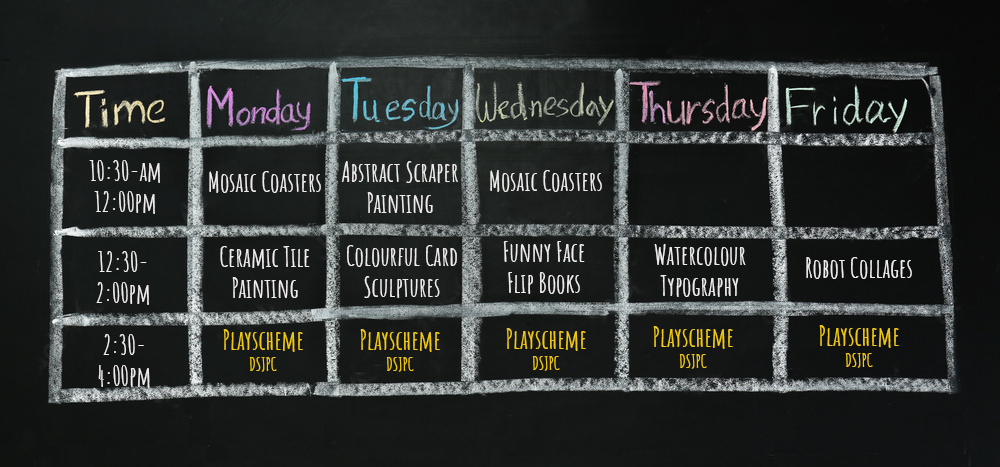 Time Monday Tuesday Wednesday Thursday Friday
10:30-am
12:00pm
Mosaic Coasters
Abstract Scraper
Painting
Mosaic Coasters
12:30-
2:00pm
Ceramic Tile
Painting
Colourful Card
Sculptures
Funny Face
Flip Books
Watercolour
Typography
Robot Collages
2:30-
4:00pm
Playscheme
DSJPC
Playscheme
DSJPC
Playscheme
DSJPC
Playscheme
DSJPC
Playscheme
DSJPC